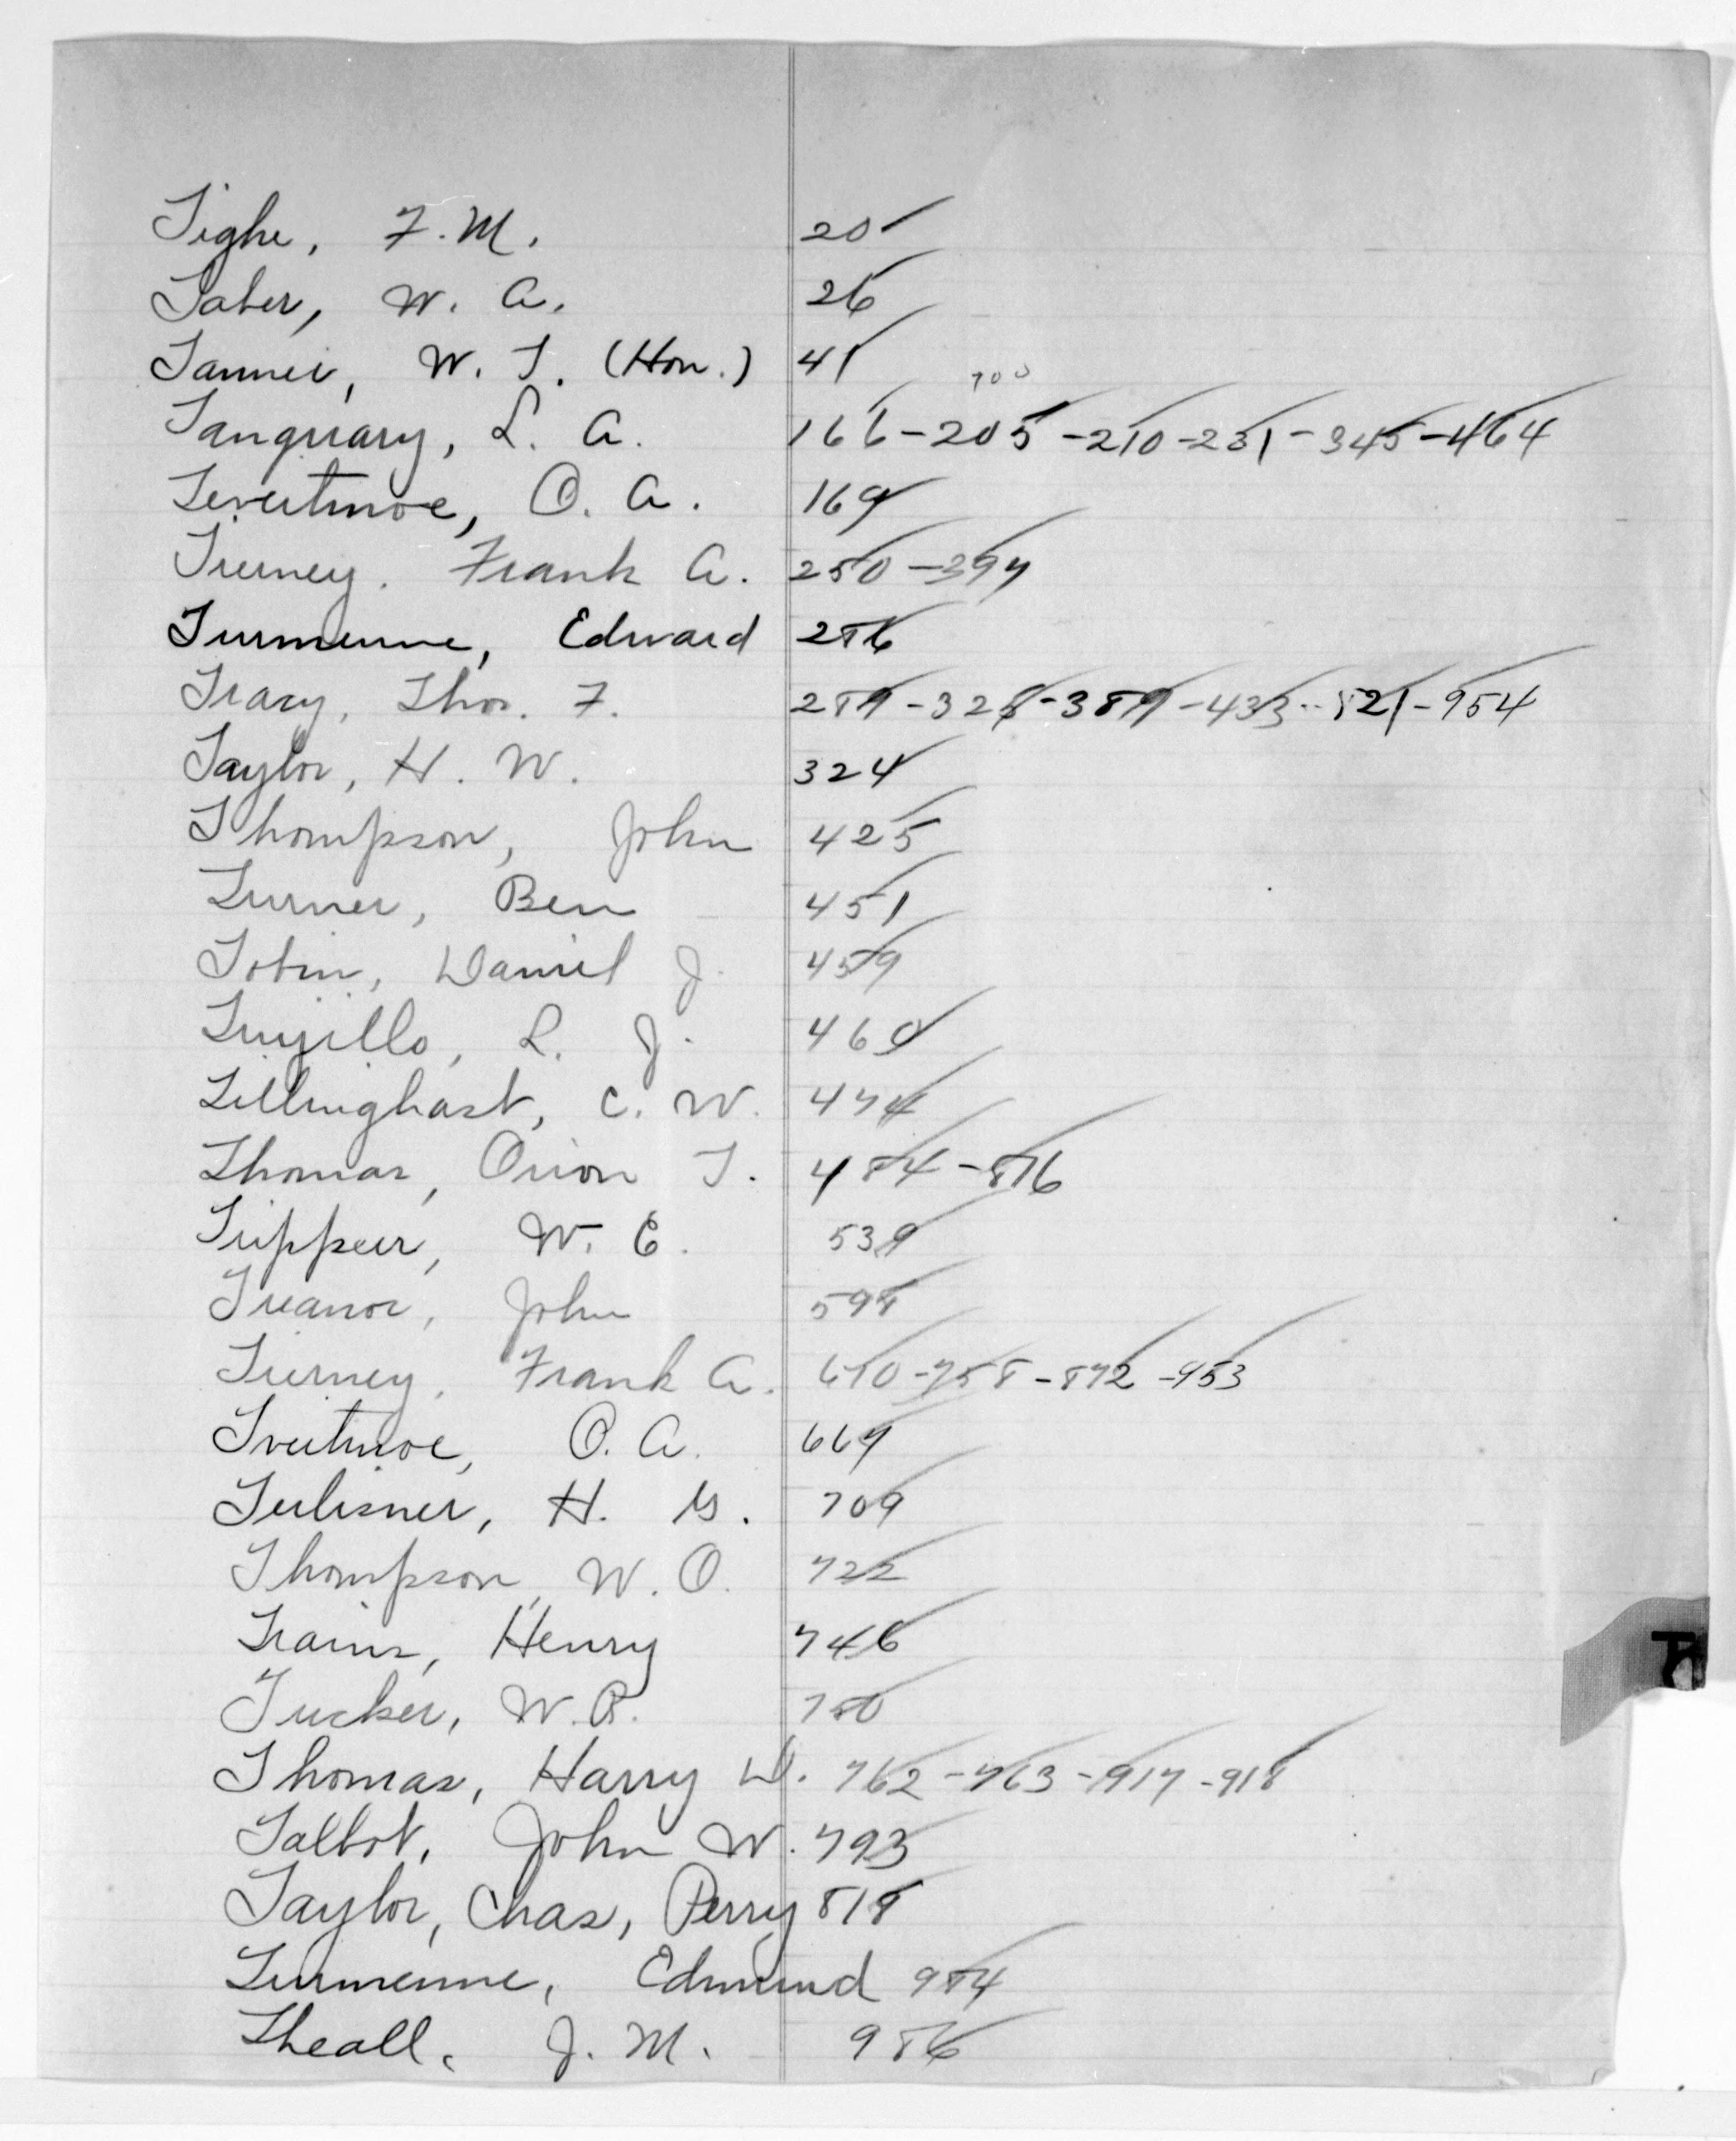 Tighe, F. M. 20
Taber, W. A. 26
Tanner, W. T. (Hon.) 41
700
Tanquary, L. A. 166-205-210-231-345-464
Teveitmoe, O. A. 169
Tierney. Frank A. 250-397
Turmenne, Edward 286
Tracy, Thos. F. 289-328-389-433-821-954
Taylor, H. W. 324
Thompson, John 425
Turner, Ben 451
Tobin, Daniel J. 459
Trujillo, L. J. 460
Tillinghast, C. W. 474
Thomas, Orion T. 484-876
Trippeer, W. E. 539
Treanor, John 598
Tierney, Frank A. 670-758-872-953
Tveitmoe, O. A. 669
H. G. 709
Thompson, W. O. 722
Trains, Henry 746
Tucker, W. R. 780
Thomas, Harry D. 762-763-917-918
Talbot, John W. 793
Taylor, Chas, Perry 818
Turmenne, Edmund 984
Theall, J. M. 986
T